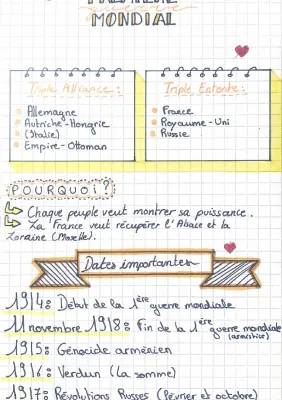 PREMIÈRE
guerre
MONDIAL
Triple Alliance:
Allemagne
Autriche-Hongrie
(Italie)
Empire-Ottoman
Triple Entente:
France
Royaume-Uni
Russie
POURQUOI?
Chaque peuple veut montrer sa puissance.
La France veut récupérer l'Alsace et la
Loraine (Moselle).
Dates importantes
1914: Début de la 1ère guerre mondiale
11 novembre 1918: Fin de la 1ère guerre mondiale
(armistice)
1915: Génocide arménien
1916: Verdun (la somme)
1917: Révolutions Russes (février et octobre)